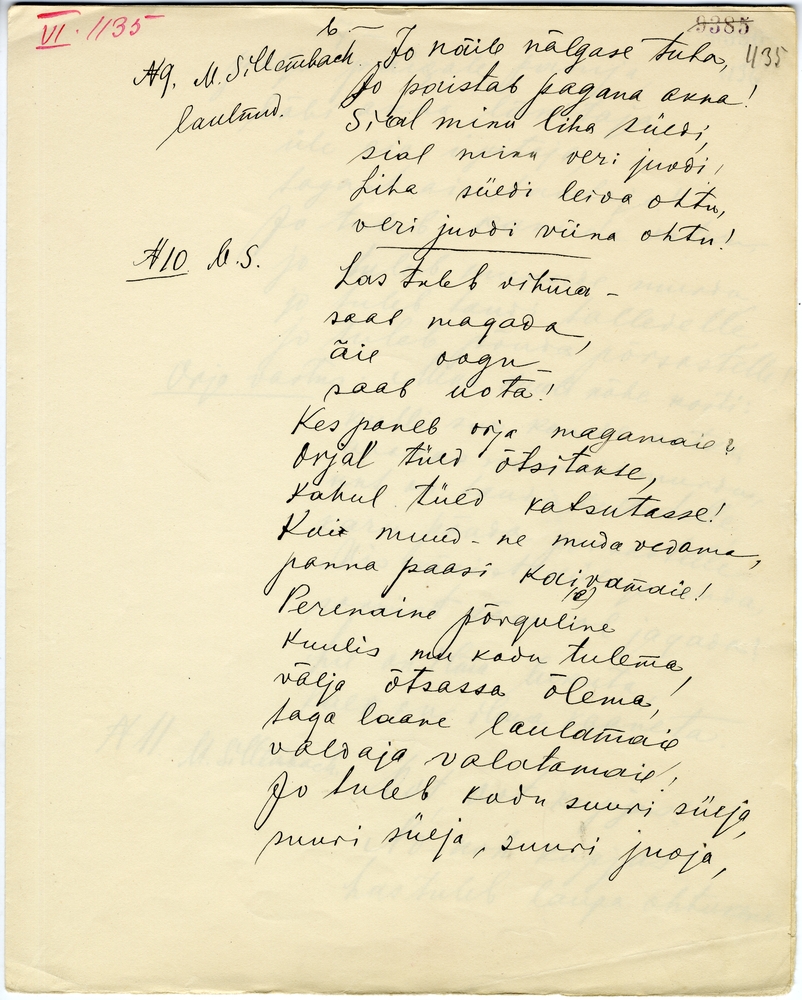 VI. 1135
9385
1135
6 —
№9. M. Sillembach
laulnud.
Jo näib nälgase tuba,
Jo paistab pagana akna!
Siäl minu liha süedi,
siäl minu veri juodi,
Liha süedi leiva ohtu,
veri juodi viina ohtu!
№10. M. S.
Las tuleb vihma —
saab magada,
äie oogu —
saab uota!
Kes paneb orja magamaie?
Orjal tüed õtsitakse,
kahul tüed katsutasse!
Kui muud - ne muda vedama,
panna paasi kaivamaie!
Perenaine põrguline (e)
kuulis mu kodu tulema,
välja õtsassa õlema,
taga laane laulamaie
valdaja valatamaie!
Jo tuleb kodu suuri süeja,
suuri süeja, suuri juoja,